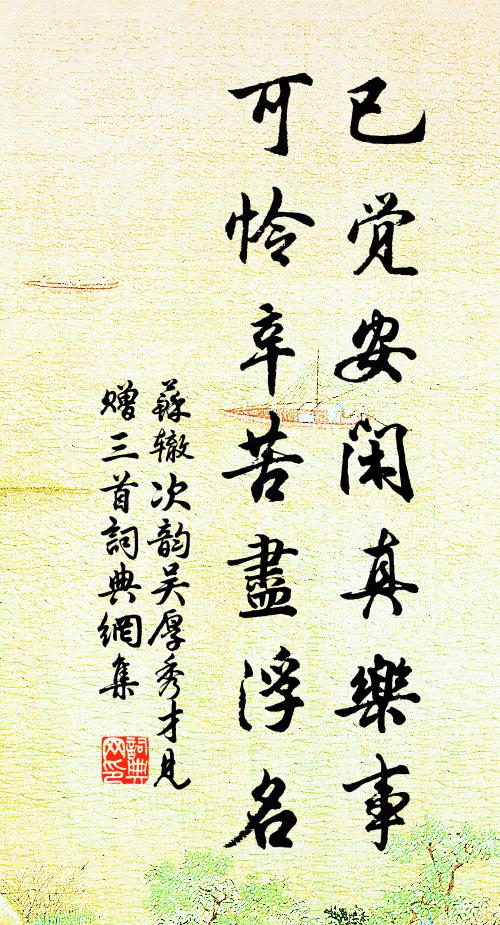 已觉安闲真樂事
可怜辛苦盡浮名
蘇辙次韵吴厚秀才見
赠三首詞典網集
詞典
网印